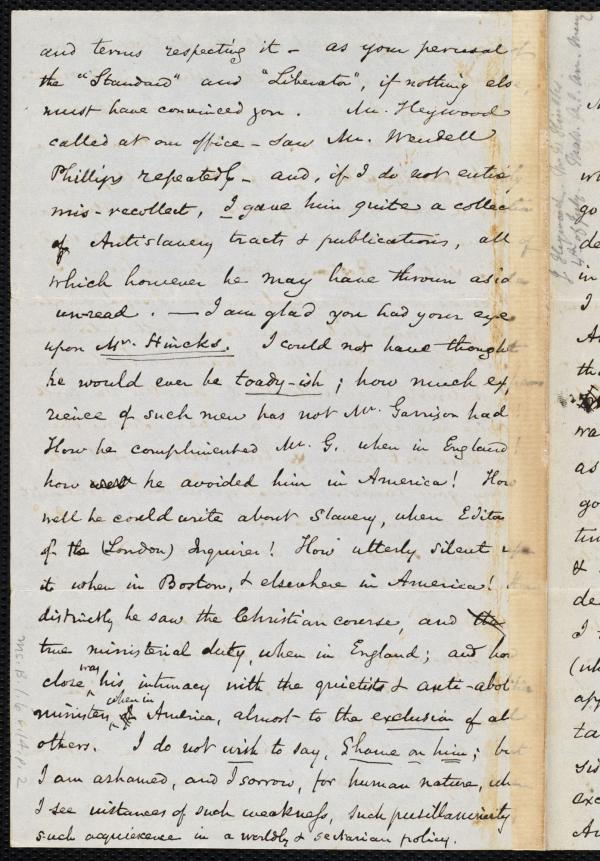 and terms respecting it - as your perusal of
the "Standard" and "Liberator", if nothing els
must have convinced you. Mr. Heywood
called at our office - saw Mr. Wendell
Phillips repeatedly - and, if I do not entire
mis-recollect, I gave him quite a collection
of Antislavery tracts & publications, all of
which however he may have thrown aside
unread. — I am glad you had your eye
upon Mr. Hincks. I could not have thought
he would ever be toady-ish; how much ex
rience of such men has not Mr. Garrison had!
How he complimented Mr. G. when in England!
how he avoided him in America! How
well he could write about Slavery, when Editor
of the (London) Inquirer! How utterly silent upon
it when in Boston, & elsewhere in America!
distinctly he saw the Christian course, and the
true ministerial duty, when in England; and how
close was his intimacy with the quietists & anti-abolition
ministers, when in America, almost to the exclusion of all
others. I do not wish to say, Shame on him; but
I am ashamed, and I sorrow, for human nature, when
I see instances of such weakness, such pusillanimity
such acquiescence in a worldly & sectarian policy.
Ms. B. 1. 6